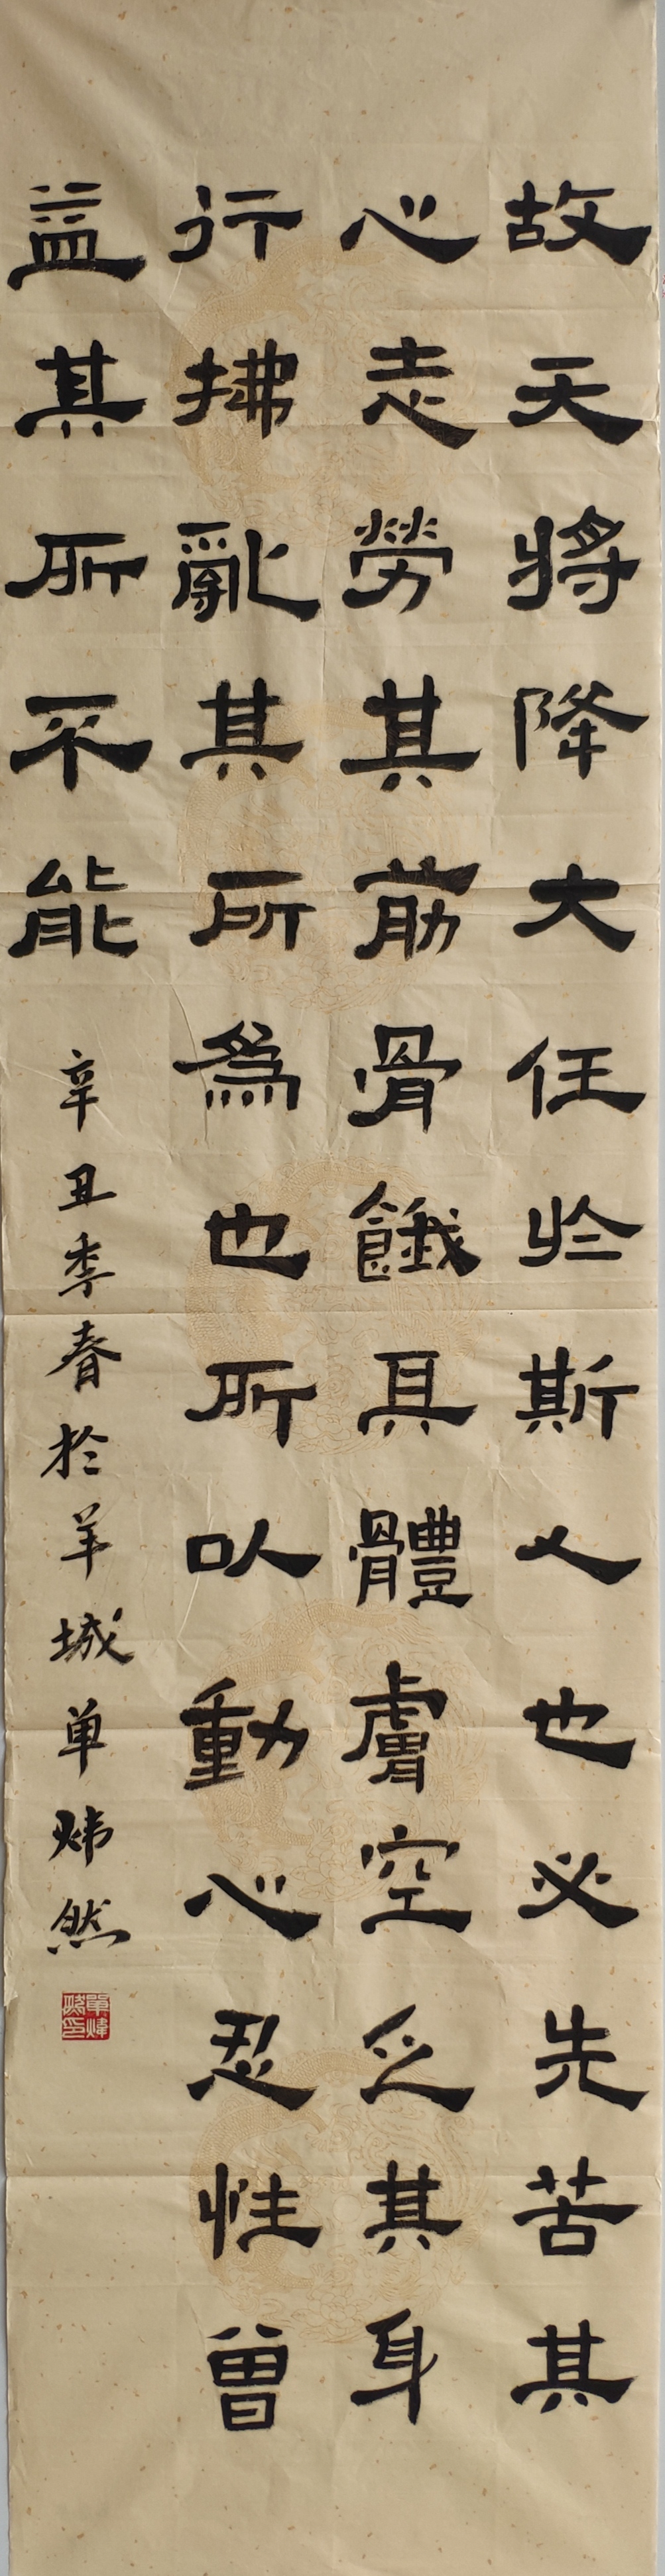 故天将降大任於斯人也必先苦其
心志勞其筋骨餓其體膚空乏其身
行拂亂其所為也所以動心忍性曾
益其所不能
辛丑季春於羊城单炜然
單煒然印